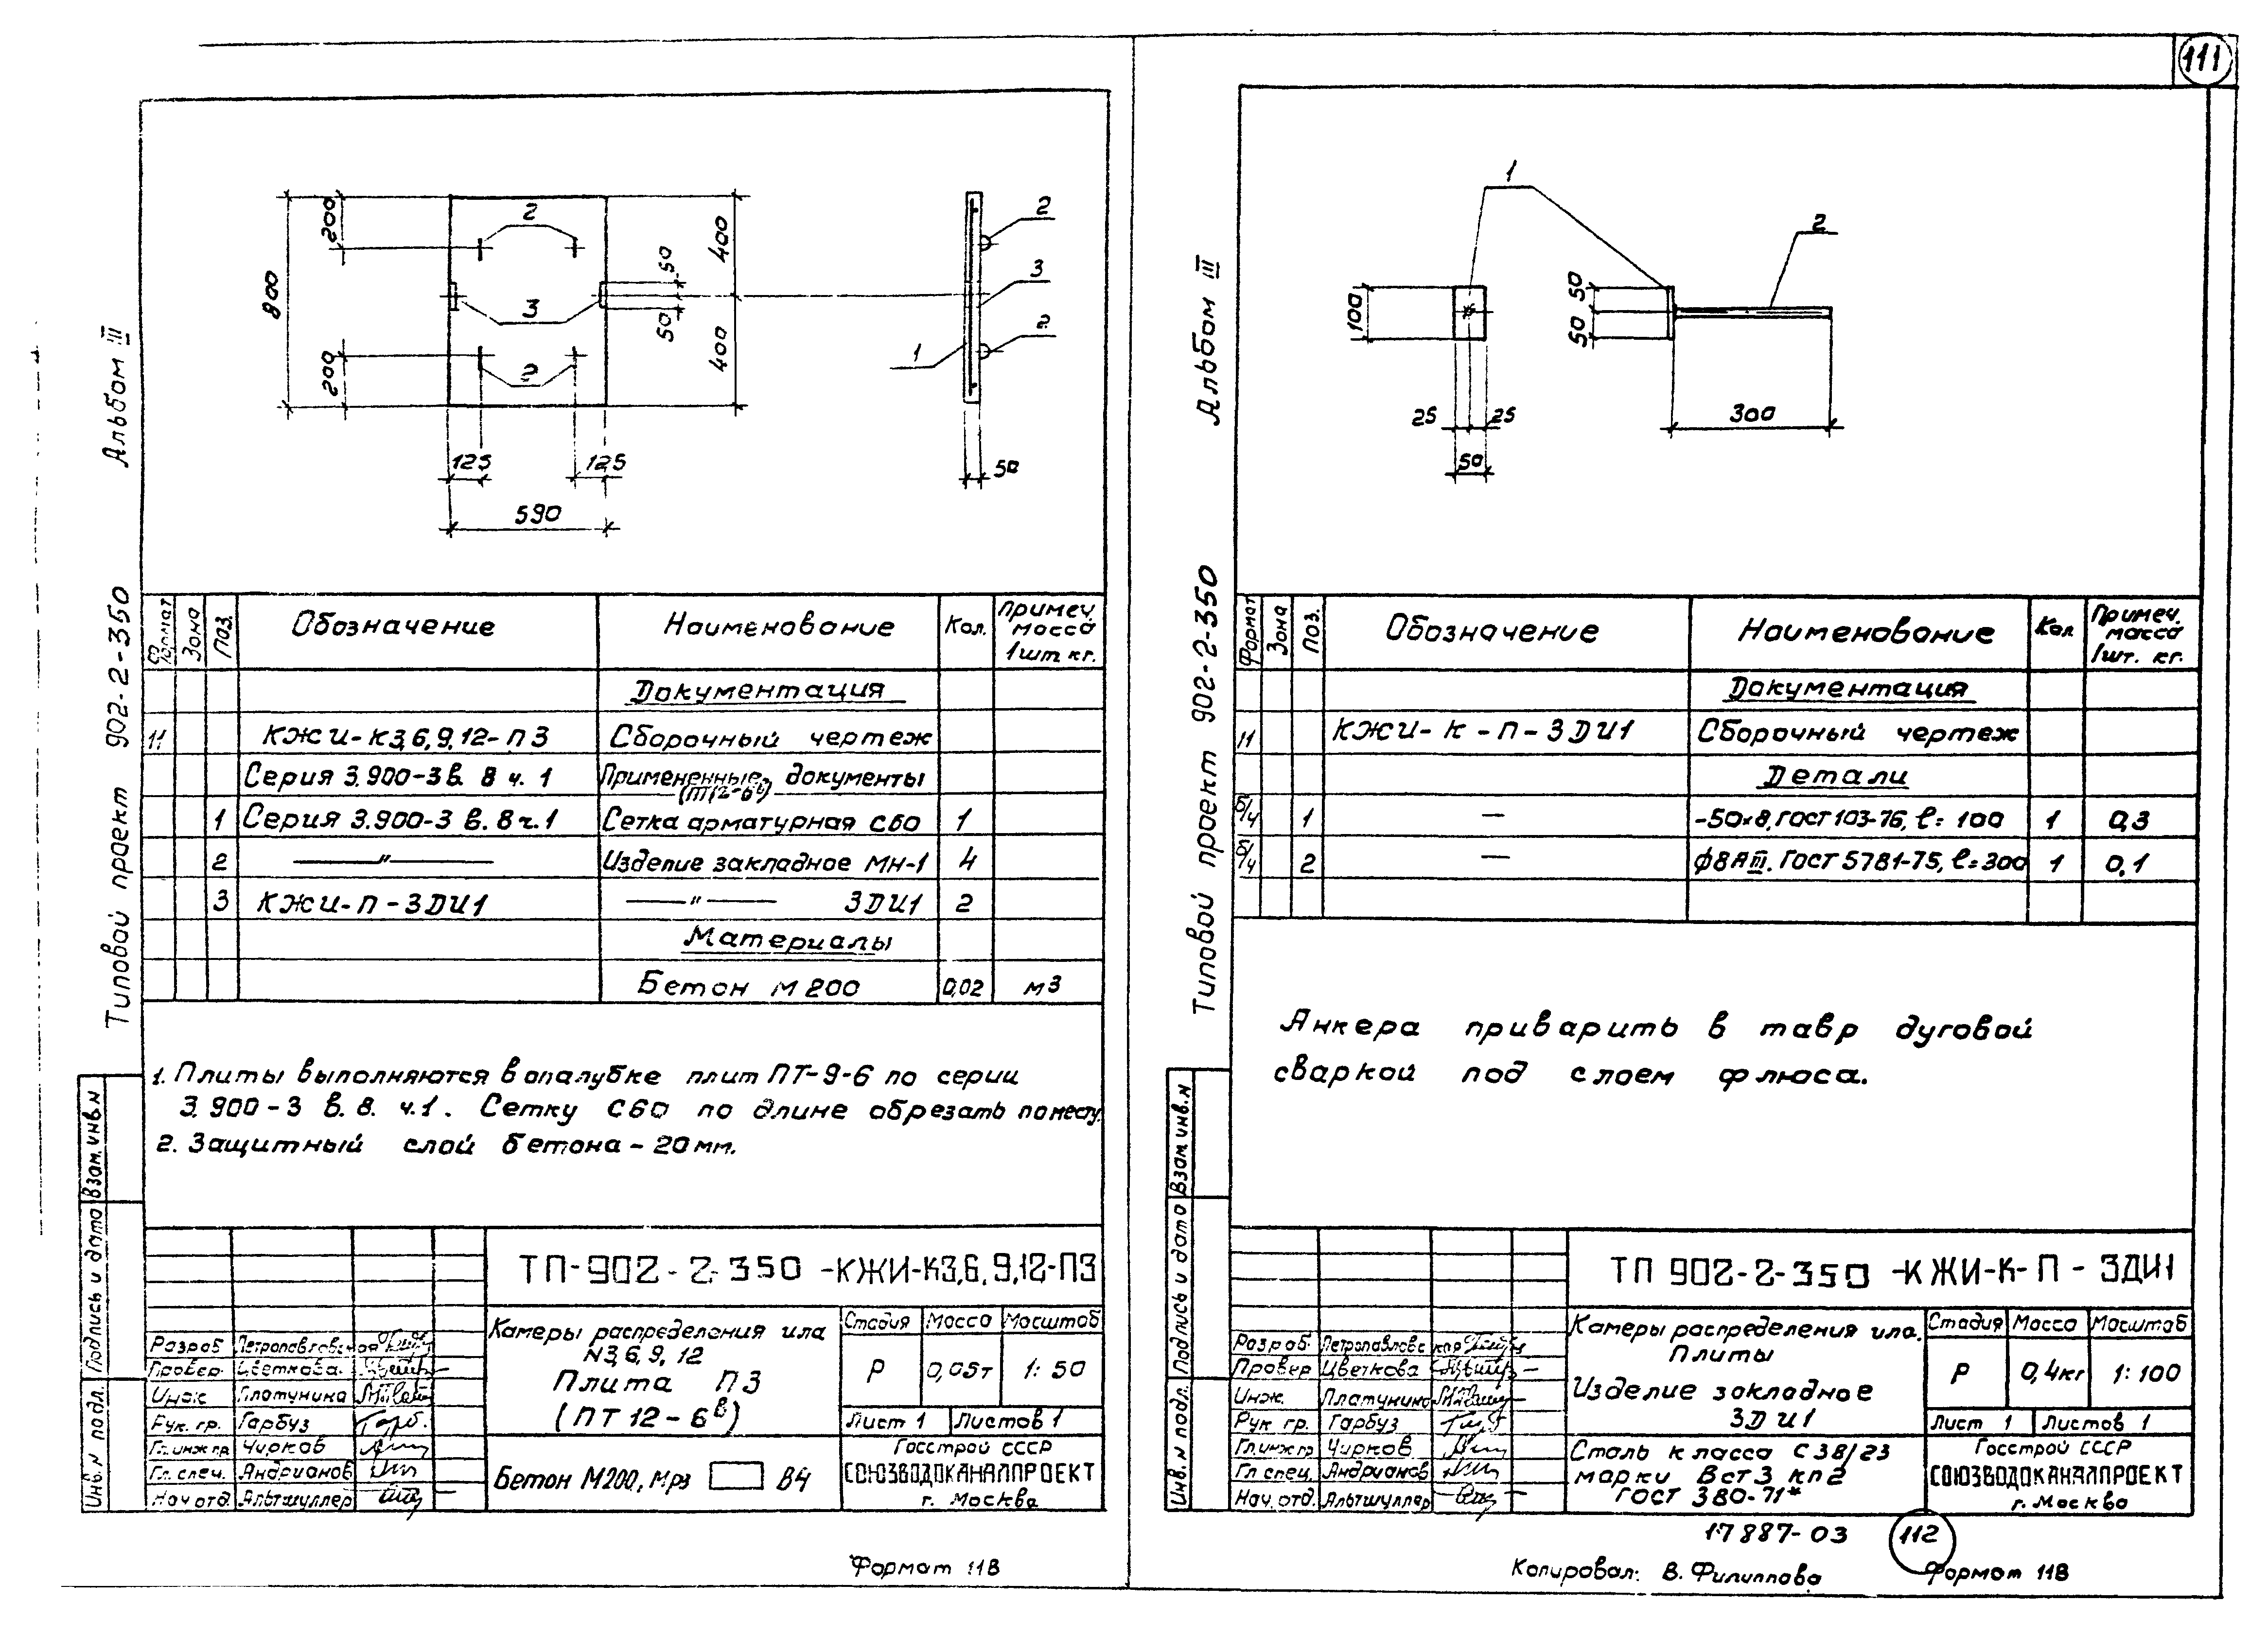 111
Альбом III
Типовой проект 902-2-350
800
200
200
2
3
2
50
50
400
400
125
125
590
1
2
3
2
50
Формат
Зона
Поз.
Обозначение
Наименование
Кол.
Примеч. масса 1шт кг.
Документация
11 КЖИ-К3,6,9,12-П3 Сборочный чертеж
Серия 3.900-3 в. 8 ч. 1 Примененные документы
(ПТ12-6в)
1 Серия 3.900-3 в. 8 ч. 1 Сетка арматурная С60 1
2 —"— Изделие закладное МН-1 4
3 КЖИ-П-3ДИ1 —"— 3ДИ1 2
Материалы
Бетон М200 0,02 м3
1. Плиты выполняются в опалубке плит ПТ-9-6 по серии
3.900-3 в. 8. ч.1. Сетку С60 по длине обрезать по месту.
2. Защитный слой бетона – 20 мм.
Взам. инв. N
Подпись и дата
Инв. N подл.
ТП-902-2-350-КЖИ-К3,6,9,12-П3
Разраб Петропавловская
Провер. Цветкова
Инж. Платунина
Рук. гр. Гарбуз
Гл. инж пр. Чирков
Гл. спец. Андрианов
Нач отд. Альтшуллер
Камеры распределения ила
N3,6,9,12
Плита П3
(ПТ12-6в)
Бетон М200, Мрз В4
Стадия Масса Масштаб
Р 0,05т 1:50
Лист 1 Листов 1
Госстрой СССР
СОЮЗВОДОКАНАЛПРОЕКТ
г. Москва
Формат 11В
Альбом III
Типовой проект 902-2-350
1
2
100
50
50
25
25
50
300
Формат
Зона
Поз.
Обозначение
Наименование
Кол
Примеч. масса 1шт. кг.
Документация
11 КЖИ-К-П-3ДИ1 Сборочный чертеж
Детали
б/ч 1 — -50х8, ГОСТ 103-76, ℓ= 100 1 0,3
б/ч 2 — ф8АIII. ГОСТ 5781-75, ℓ=300 1 0,1
Анкера приварить в тавр дуговой
сваркой под слоем флюса.
Взам инв. N
Подпись и дата
Инв. N подл.
ТП 902-2-350-КЖИ-К-П-3ДИ1
Разраб. Петропавловская
Провер Цветкова
Инж. Платунина
Рук гр. Гарбуз
Гл.инж пр. Чирков
Гл спец. Андрианов
Нач. отд. Альтшуллер
Камеры распределения ила.
Плиты
Изделие закладное
3ДИ1
Сталь класса С38/23
марки Вст3 кп2
ГОСТ 380-71*
Стадия Масса Масштаб
Р 0,4кг 1:100
Лист 1 Листов 1
Госстрой СССР
СОЮЗВОДОКАНАЛПРОЕКТ
г. Москва
17887-03
112
Копировал: В. Филиппова
Формат 11В